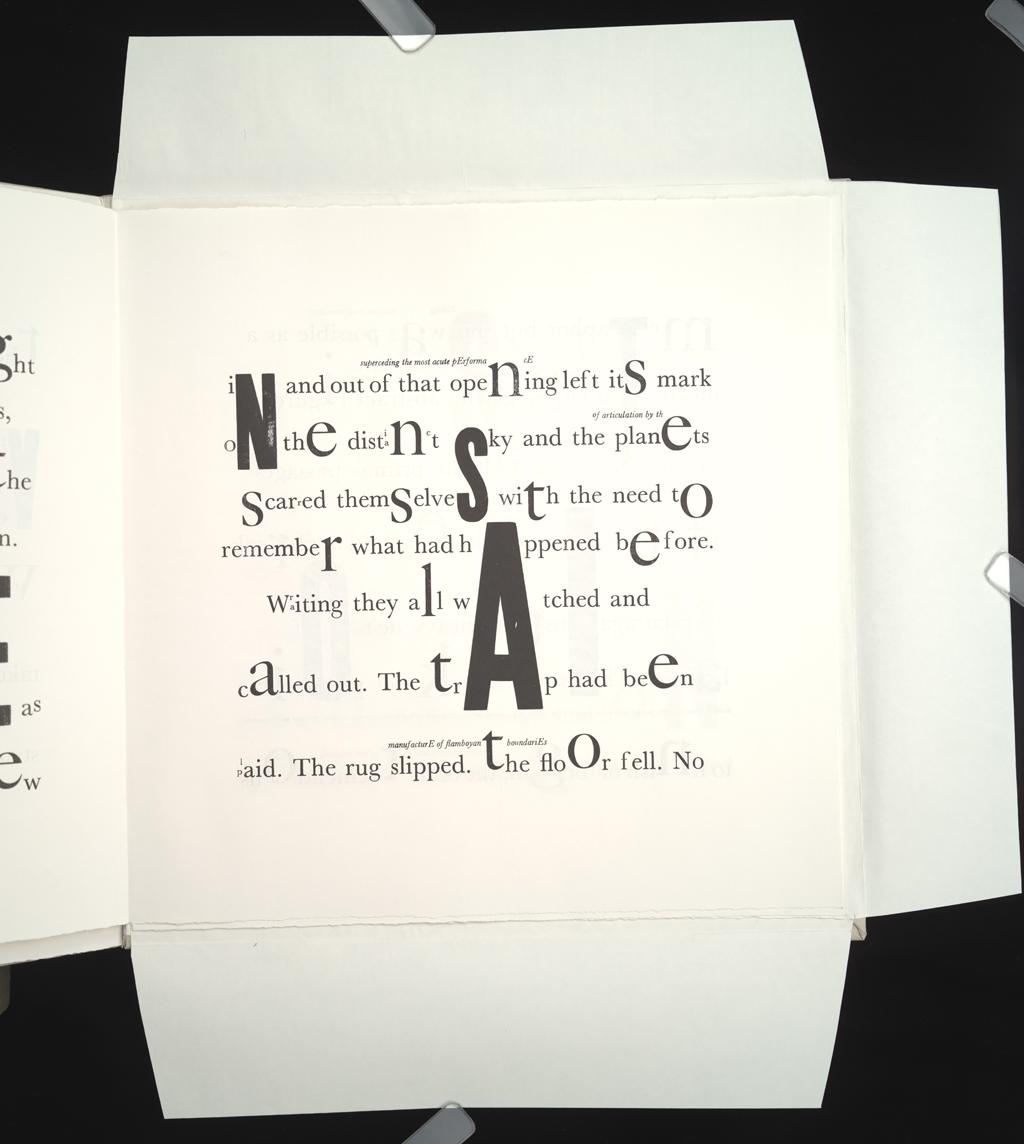 ght
s,
he
n.
as
ew
superceding the most acute pErforma cE
iN and out of that opening left itS mark
of articulation by th
oN the distian't Sky and the planets
Scar·ed themSelveS with the need tO
remember what had h Appened before.
Wraiting they all w Atched and
called out. The trAp had been
manufacturE of flamboyan boundariEs
lpaid. The rug slipped. the floOr fell. No